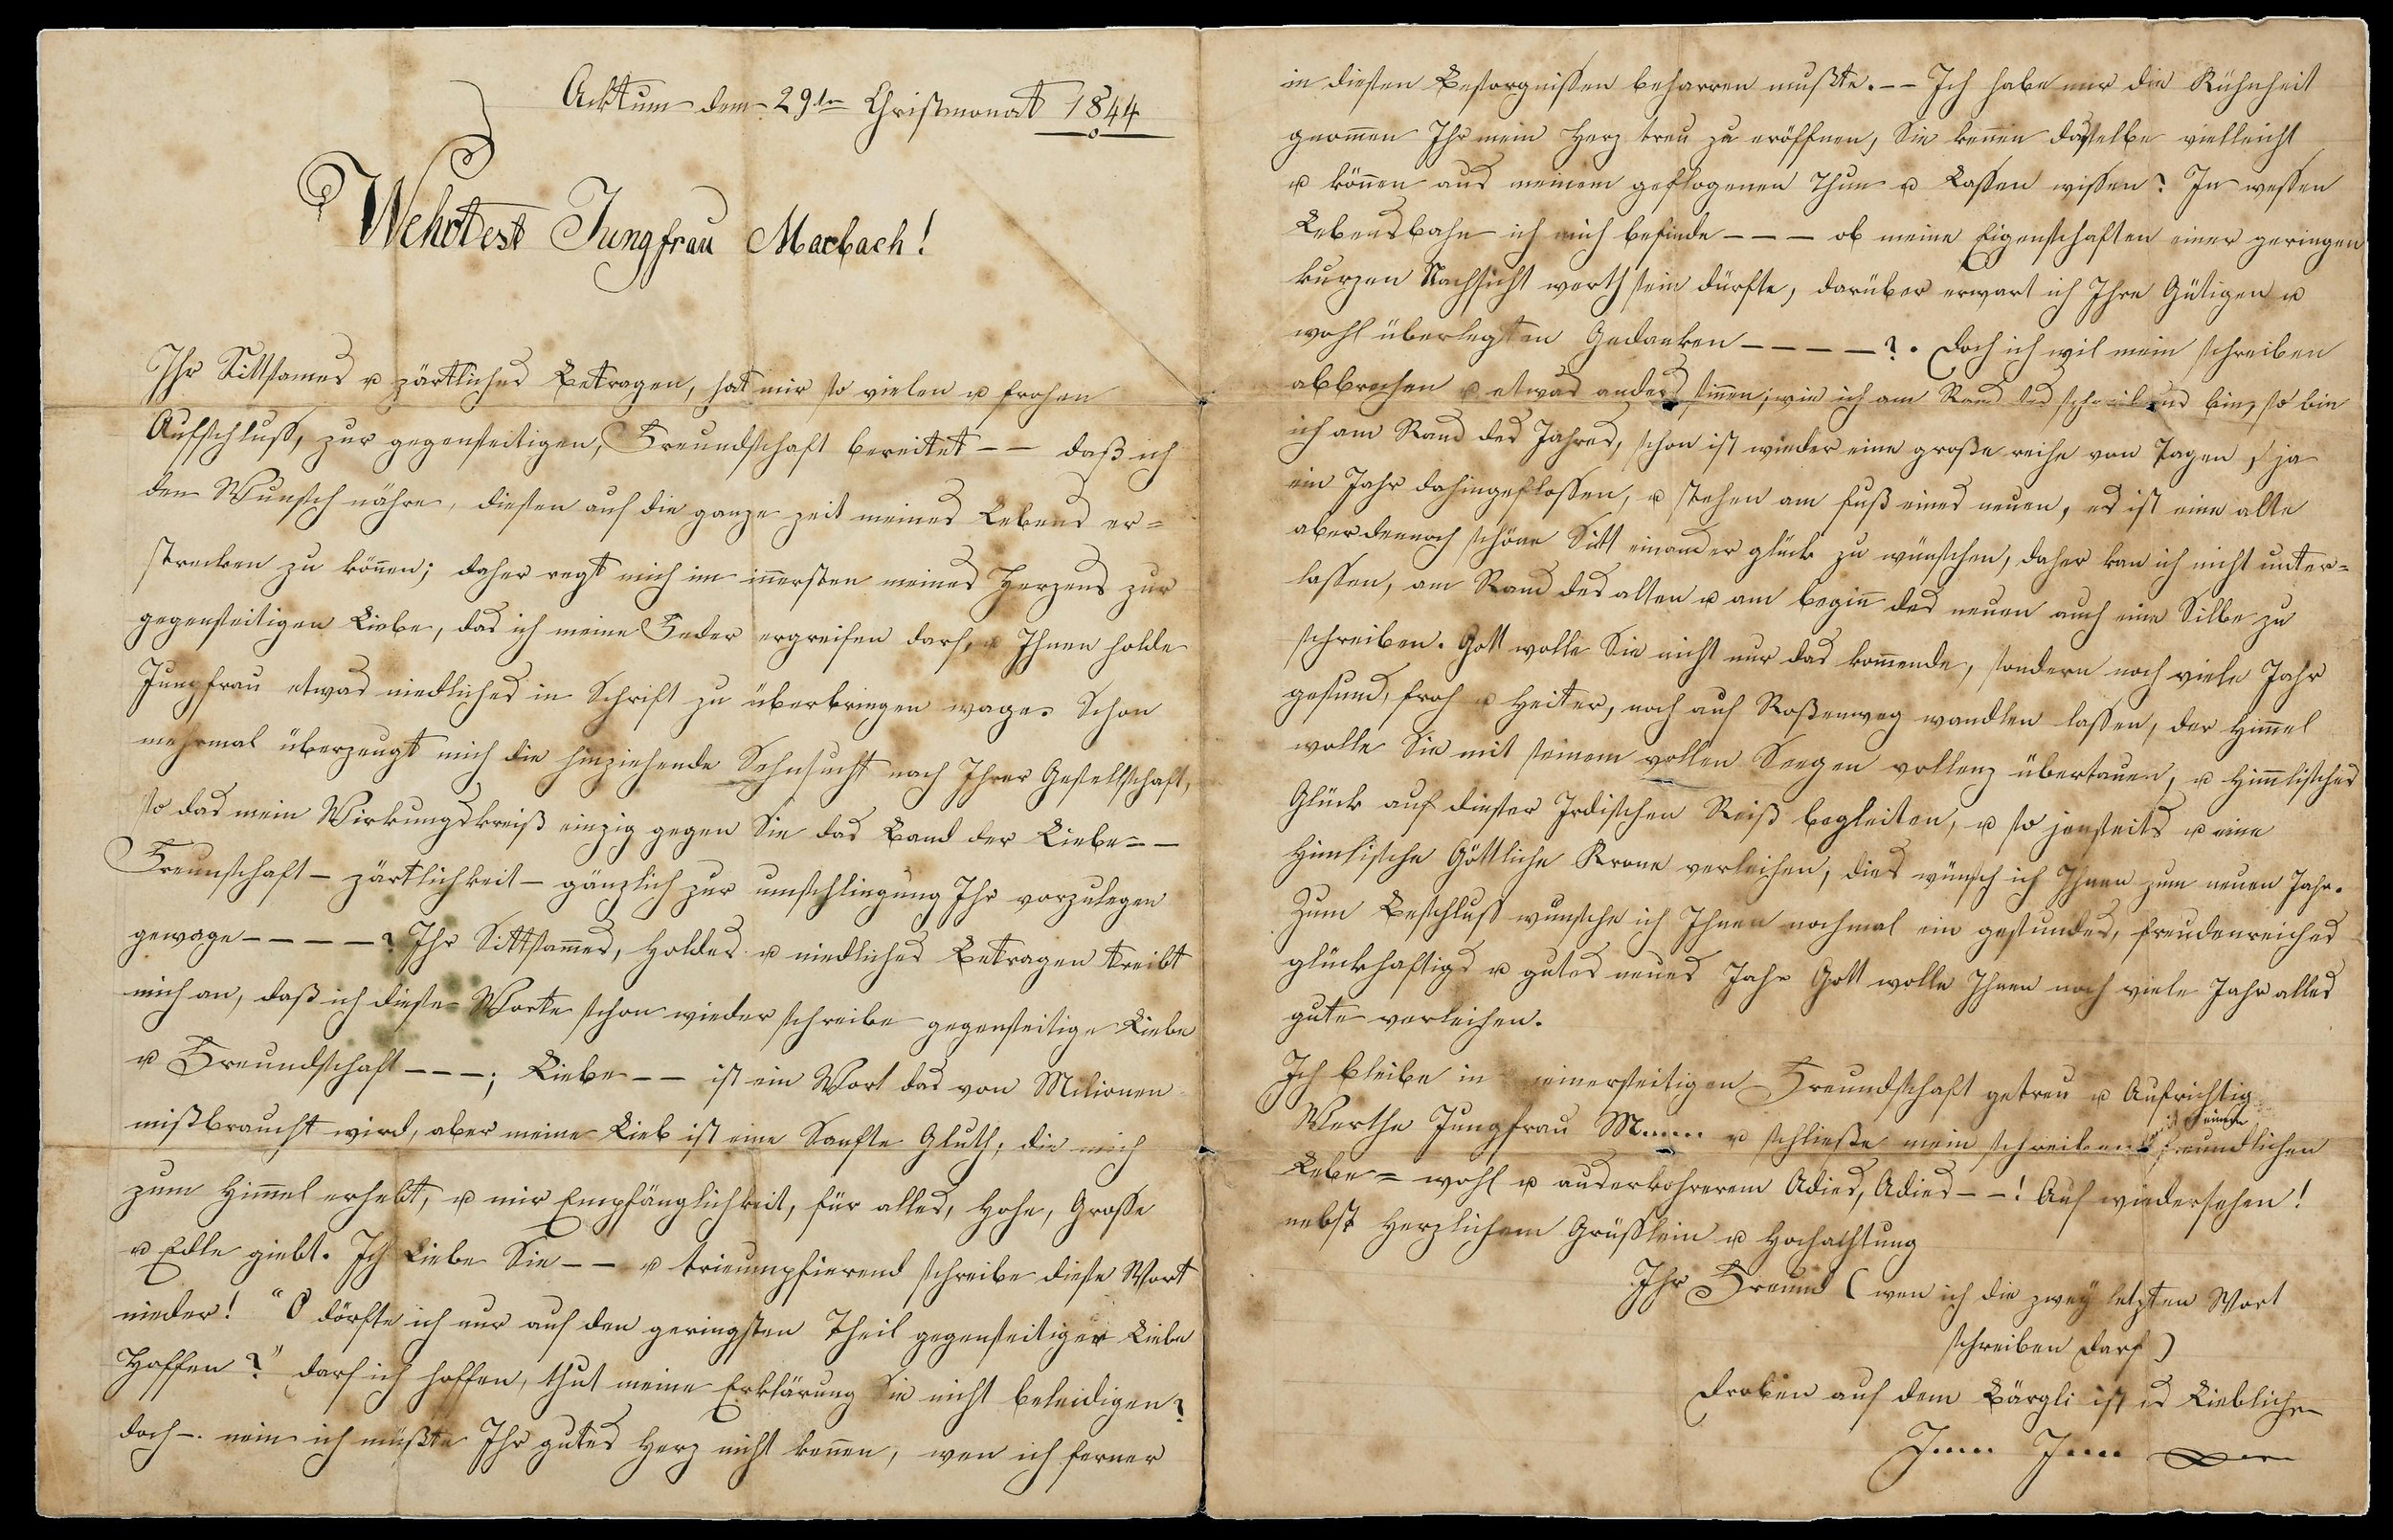 Acktum dem 29ten Christmonat 1844
Wehrtest Jungfrau Marbach!
Ihr Sittsames u zärtliches Betragen, hat mir so vielen u frohen
Aufschluss, zur gegenseitigen, Freundschaft bereitet -- daß ich
den Wunsch nähre, diesen auf die ganze zeit meines Lebens er=
strecken zu können; daher regt mich im innersten meines Herzens zur
gegenseitigen Liebe, das ich meine Feder ergreifen darf, u Ihnen holde
Jungfrau etwas niedliches in Schrift zu überbringen wage. Schon
mehrmal überzeugt mich die hinziehende Sehnsucht nach Ihrer Gesellschaft,
so das mein Wirkungskreiß einzig gegen Sie das Band der Liebe=-
Freunschaft - zärtlichkeit - gänzlich zur umschlingung Ihr vorzulegen
gewage - - - - -? Ihr Sittsammes, Holdes u niedliches Betragen treibt
mich an, daß ich diese Worte schon wieder schreibe gegenseitige Liebe
u Freundschaft - - -; Liebe - - ist ein Wort das von Milionen
mißbraucht wird, aber meine Lieb ist eine Sanfte Gluth; die mich
zum Himmel erhebt, u mir Empfänglichkeit, für alles, Hohe, Grosse
u Edle giebt. Ich Liebe Sie - - u trieumpfierend schreibe diese Wort
nieder! "O dörfte ich nur auf den geringsten Theil gegenseitiger Liebe
Hoffen?" darf ich hoffen, thut meine Erklärung Sie nicht beleidigen?
doch -. nein ich müßte Ihr gutes Herz nicht kennen, wen ich ferner
in diesen Besorgnissen beharren mußte. -- Ich habe mir die Kühnheit
gnommen Ihr mein Herz treu zu eröffnen, Sie kennen dasselbe vielleicht
u können aus meinem gepflogenen Thun u Lassen wissen? In wessen
Lebensbahn ich mich befinde - - - ob meine Eigenschaften einer geringen
kurzen Nachsicht werth sein dürfte, darüber erwart ich Ihre Gütigen u
wohl überlegten Gedanken - - - - -?. Doch ich wil mein schreiben
abbrechen u etwas anders sinnen; wie ich am Rand des schreibens bin, so bin
ich am Rand des Jahres, schon ist wieder eine große reihe von Tagen, ja
ein Jahr dahingeflossen, u stehen am fuß eines neuen, es ist eine alte
aber dennoch schöne Sitt einander glück zu wünschen, daher kan ich nicht unter=
lassen, am Rand des alten u am beginn des neuen auch eine Silbe zu
schreiben. Gott wolle Sie nicht nur das kommende, sondern noch viele Jahr
gesund, froh u Heiter, noch auf Roßenweg wandlen lassen, der Himmel
wolle Sie mit seinem vollen Seegen vollenz übertauen, u Himmlisches
Glück auf dieser Irdischen Reiß begleiten, u so jenseits u eine
Himlische Göttliche Krone verleihen, dies wünsch ich Ihnen zum neuen Jahr.
Zum Beschluss wunsche ich Ihnen nochmal ein gesundes, freudenreiches
glückhaftigs u gutes neues Jahr Gott wolle Ihnen noch viele Jahr alles
gute verleihen.
Ich bleibe in meinerseitigen Freundschaft getreu u Aufrichtig
Werthe Jungfrau M..... u schließe mein schreiben mit einem freundlichen
Lebe=wohl u auserkohrerem Adies, Adies - -! Auf wiedersehen!
nebst Herzlichem Grüsslein u Hochachtung
Ihr Freund (wen ich die zwey letzten Wort
schreiben darf)
Droben auf dem Bärgli ist es Lieblich
J.... J....